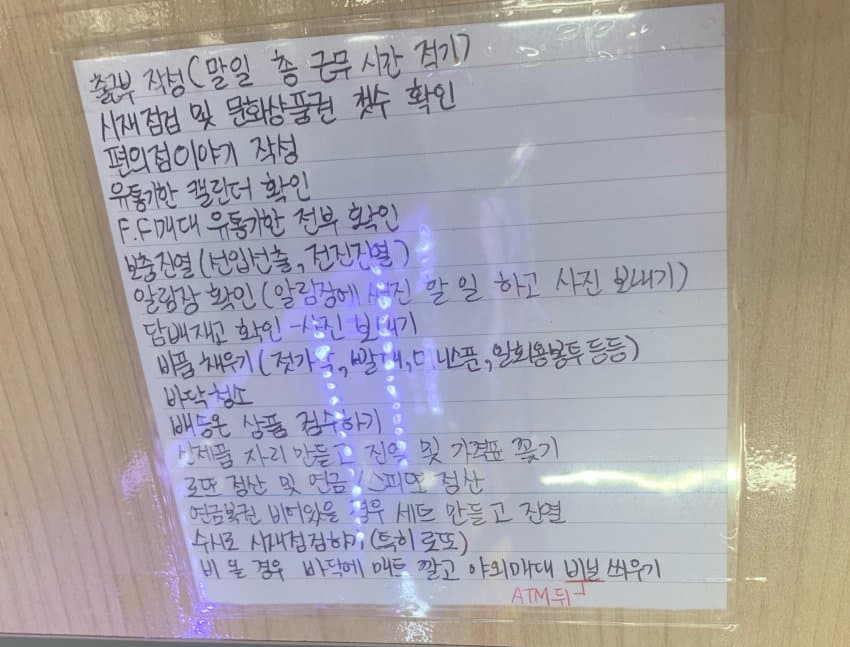 출근부 작성(말일 총 근무 시간 적기)
시재점검 및 문화상품권 갯수 확인
편의점이야기 작성
유통기한 캘린더 확인
F.F매대 유통기한 전부 확인
보충진열(선입선출, 전진진열)
알림장 확인(알림장에 써진 할 일 하고 사진 보내기)
담배재고 확인-사진 보내기
비품 채우기(젓가락, 빨대, 미니스푼, 일회용봉투 등등)
바닥청소
배송온 상품 검수하기
신제품 자리 만들고 진열 및 가격표 꽂기
로또 정산 및 연금/스피또 정산
연금복권 비어있을 경우 세트 만들고 진열
수시로 시재점검하기(특히 로또)
비 올 경우 바닥에 매트 깔고 야외매대 비닐 씌우기
ATM뒤